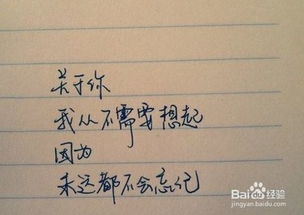 关于你
我从不需要想起
因为
永远都不会忘记
Baidu 经验
jingyan.baidu.com